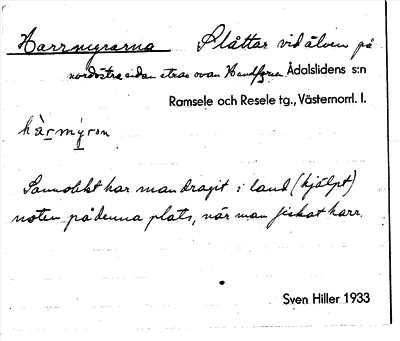 Harrmyrarna Slåttar vid älven på
nordöstra sidan strax ovan Ådalslidens s:n
Ramsele och Resele tg., Västernorrl. l.
hàrmýron
Sannolikt har man dragit i land (hjälpt)
noten på denna plats, när man fiskat harr.
Sven Hiller 1933